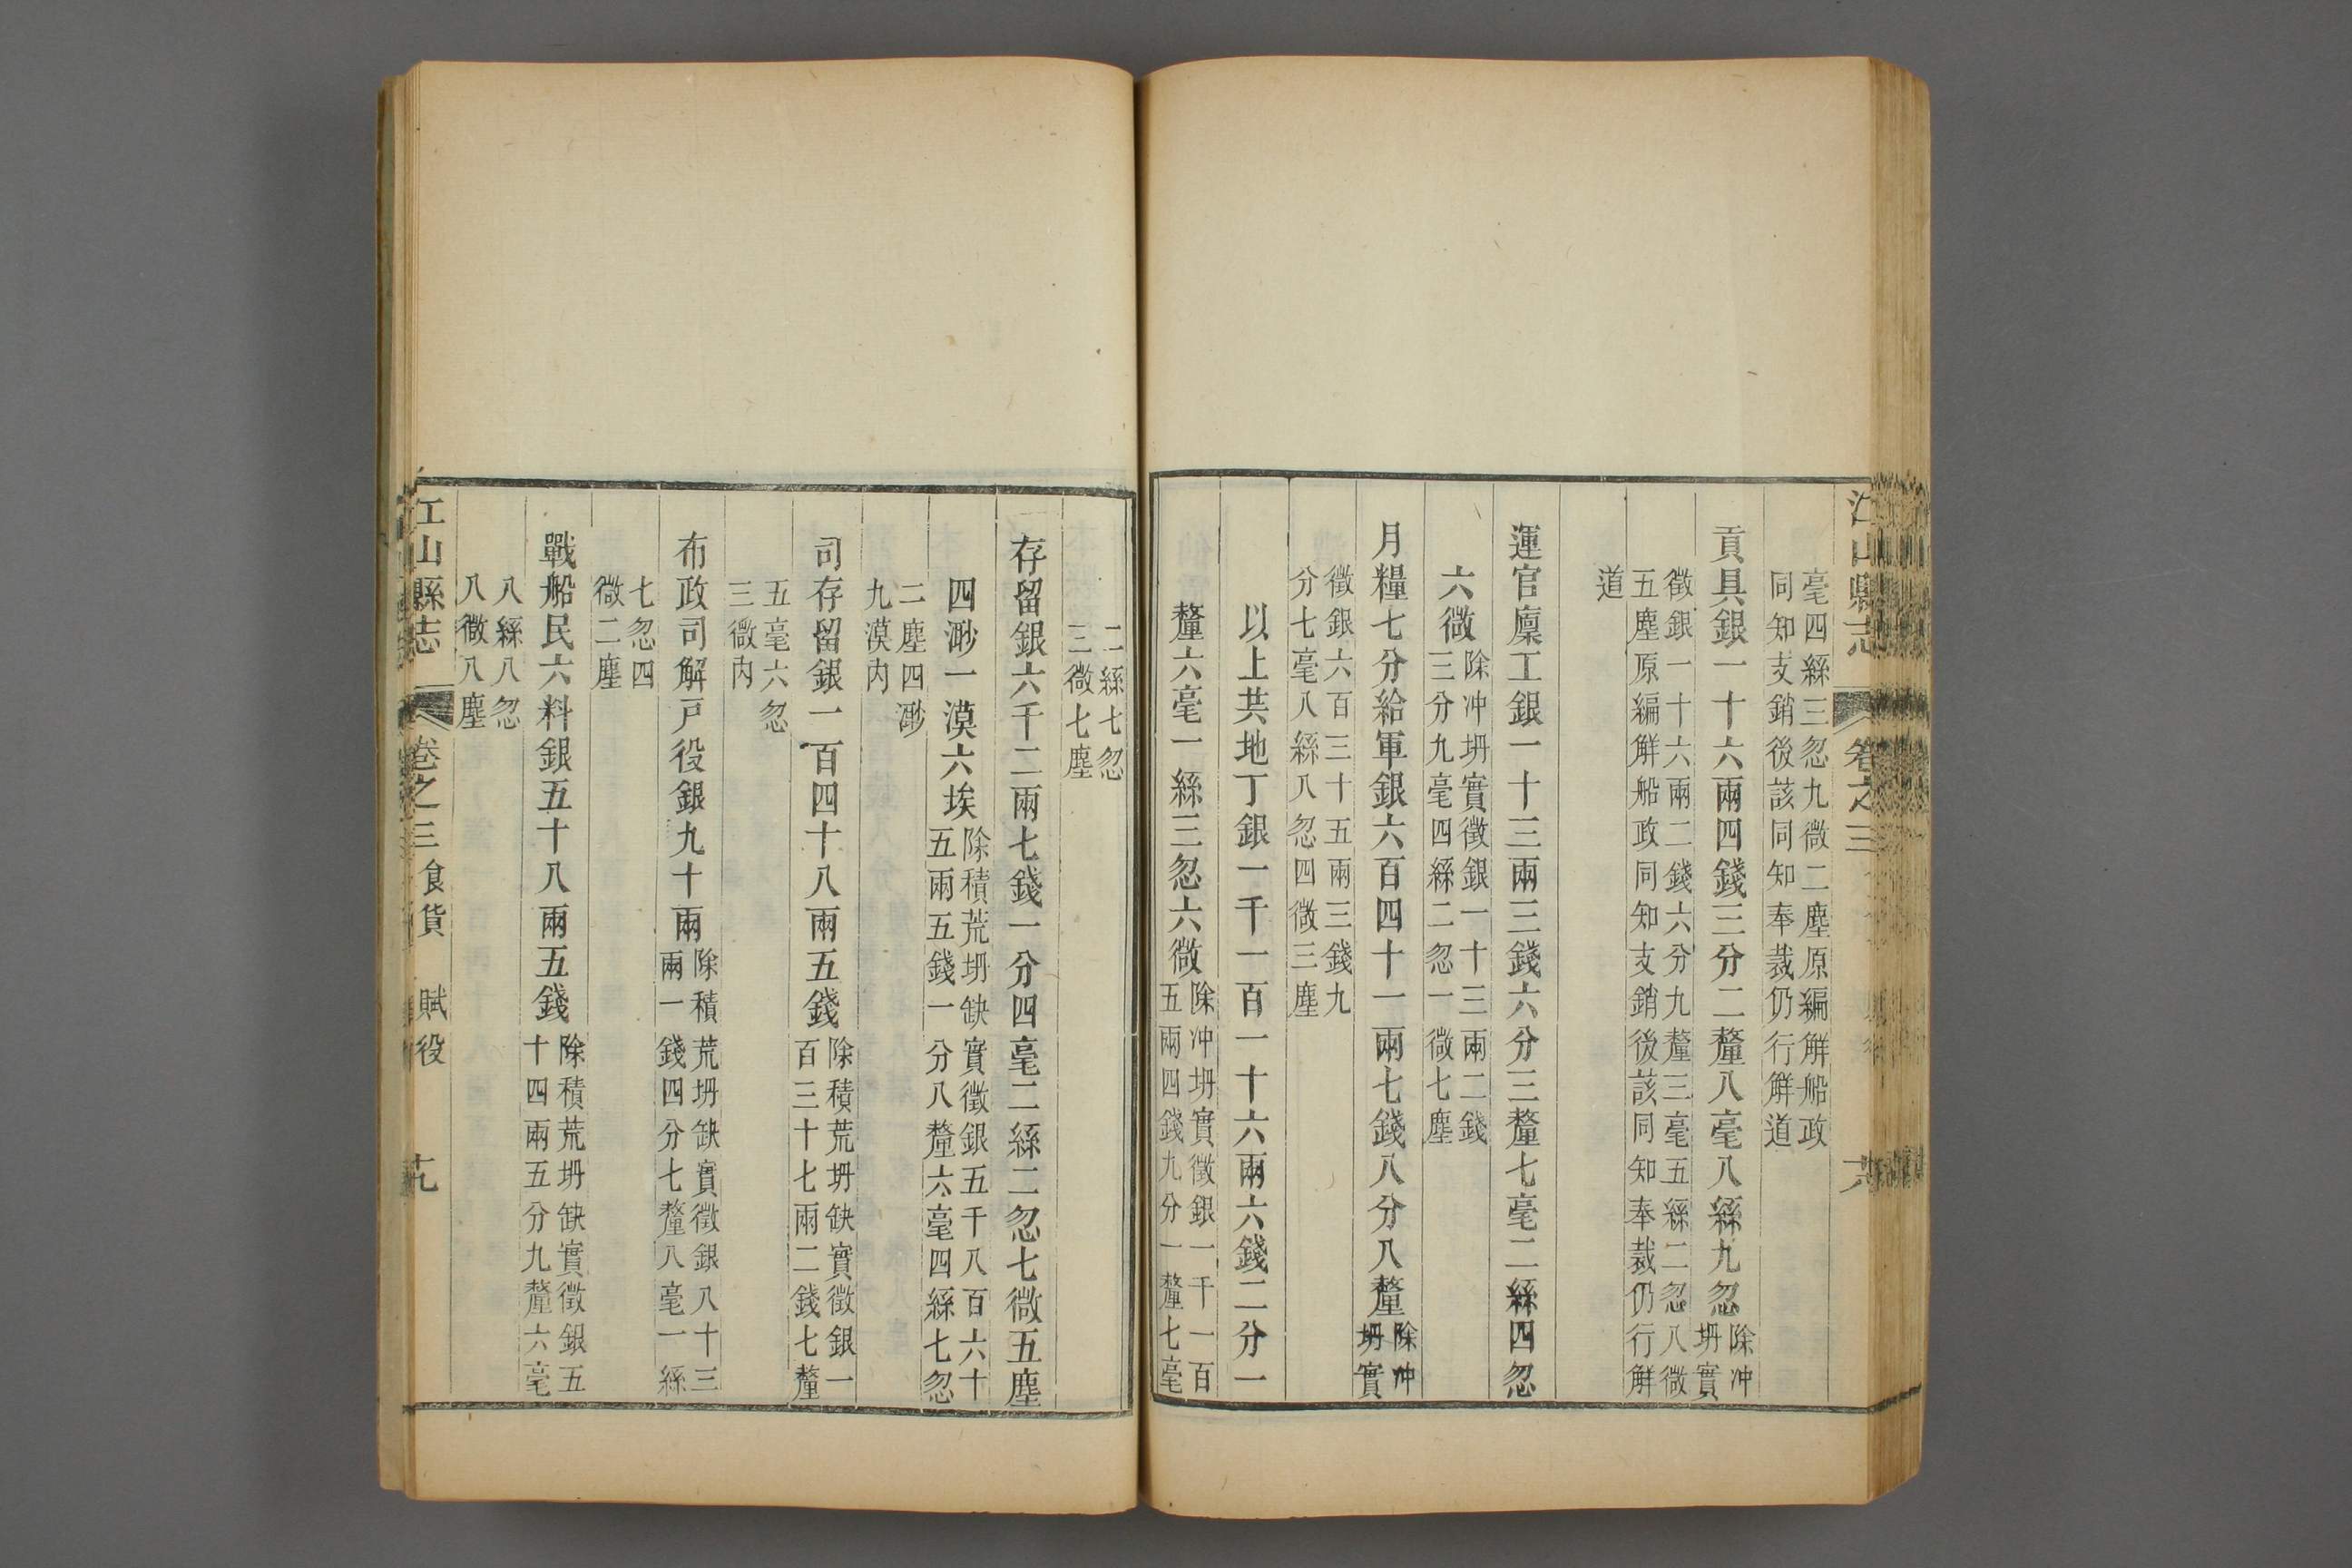 江山縣志 卷之三 六
毫四絲三忽九微二塵原編解船政
同知支銷後該同知奉裁仍行解道
貢具銀一十六兩四錢三分二釐八毫八絲九忽除冲
坍實
徵銀一十六兩二錢六分九釐三毫五絲二忽八微
五塵原編解船政同知支銷後該同知奉裁仍行解
道
運官廩工銀一十三兩三錢六分三釐七毫二絲四忽
六微除冲坍實徵銀一十三兩二錢
三分九毫四絲二忽一微七塵
月糧七分給軍銀六百四十一兩七錢八分八釐除冲
坍實
徵銀六百三十五兩三錢九
分七毫八絲八忽四微三塵
以上共地丁銀一千一百一十六兩六錢二分一
釐六毫一絲三忽六微除冲坍實徵銀一千一百
五兩四錢九分一釐七毫
二絲七忽
三微七塵
存留銀六千二兩七錢一分四毫二絲二忽七微五塵
四渺一漠六埃除積荒坍缺實徵銀五千八百六十
五兩五錢一分八釐六毫四絲七忽
二塵四渺
九漠內
司存留銀一百四十八兩五錢除積荒坍缺實徵銀一
百三十七兩二錢七釐
五毫六忽
三微內
布政司解戶役銀九十兩除積荒坍缺實徵銀八十三
兩一錢四分七釐八毫一絲
七忽四
微二塵
戰船民六料銀五十八兩五錢除積荒坍缺實徵銀五
十四兩五分九釐六毫
八絲八忽
八微八塵
江山縣志 卷之三 食貨 賦役 十九